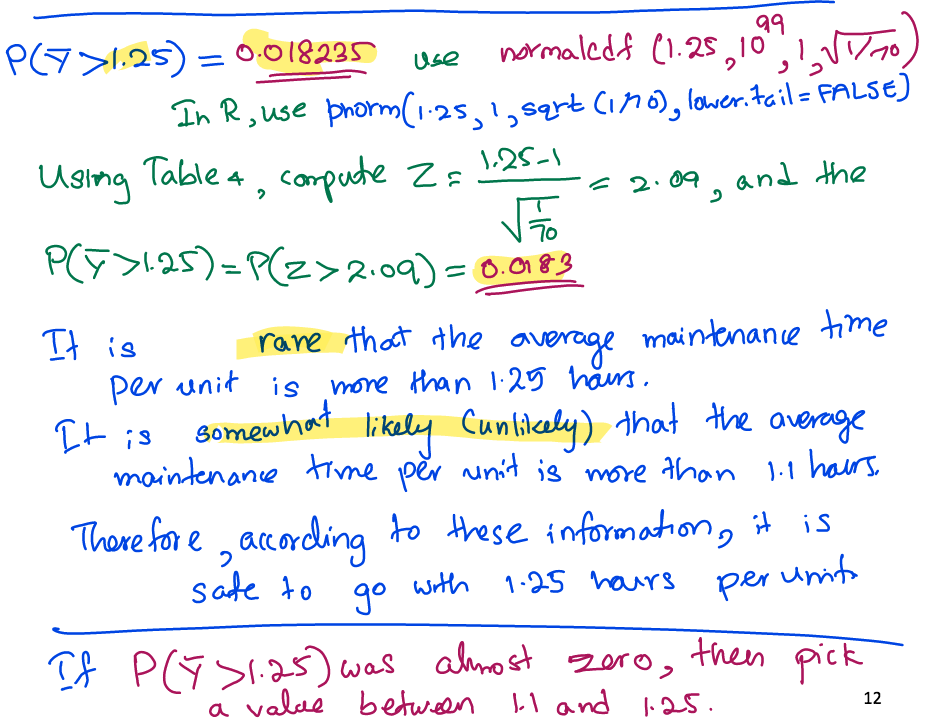 P(Ȳ >1.25) = 0.018235 use normalcdf (1.25, 10^99, 1, √(1/70))
In R, use pnorm(1.25, 1, sqrt (1/70), lower.tail = FALSE)
Using Table 4, compute Z = (1.25-1)/√(1/70) = 2.09, and the
P(Ȳ >1.25) = P(Z > 2.09) = 0.0183
It is rare that the average maintenance time
per unit is more than 1.25 hours.
It is somewhat likely (unlikely) that the average
maintenance time per unit is more than 1.1 hours.
Therefore, according to these information, it is
safe to go with 1.25 hours per unit
If P(Ȳ >1.25) was almost zero, then pick
a value between 1.1 and 1.25.
12